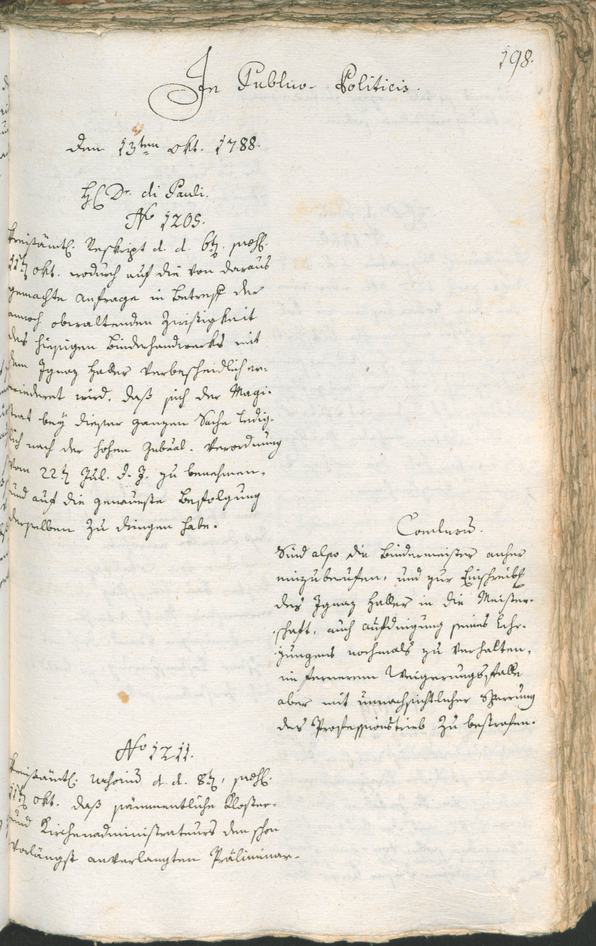 198.
In Publico-Politicis.
Den 13ten Okt. 1788.
H. Dr. di Pauli.
No 1205.
Kreisämtl. Reskript d. d. 6t, praes.
11t Okt. wodurch auf die von daraus
gemachte Anfrage in Betreff der
annoch obwaltenden Zwistigkeit
des hiesigen Binderhandwerks mit
dem Ignaz Haller verbescheidlich er-
wiederet wird, daß sich der Magi-
strat bey dieser ganzen Sache ledig-
lich nach der hohen Gubial. Verordnung
vom 22t Jul. d. J. zu benehmen,
und auf die genaueste Befolgung
derselben zu dringen habe.
Conclusum.
Sind also die Bindermeister anher
einzuberufen, und zur Einschreibg
des Ignaz Haller in die Meister-
schaft, auch Aufdingung seines Lehr-
jungens nochmals zu verhalten,
im fernerem Weigerungsfalle
aber mit unnachsichtlicher Sperrung
des Professionstrieb zu bestrafen.
No 1211.
Kreisämtl. d. d. 8t, praes.
11t Okt. daß sämmentliche Kloster-
und Kirchenadministrateurs den schon
vorlängst anverlangten Präliminar-